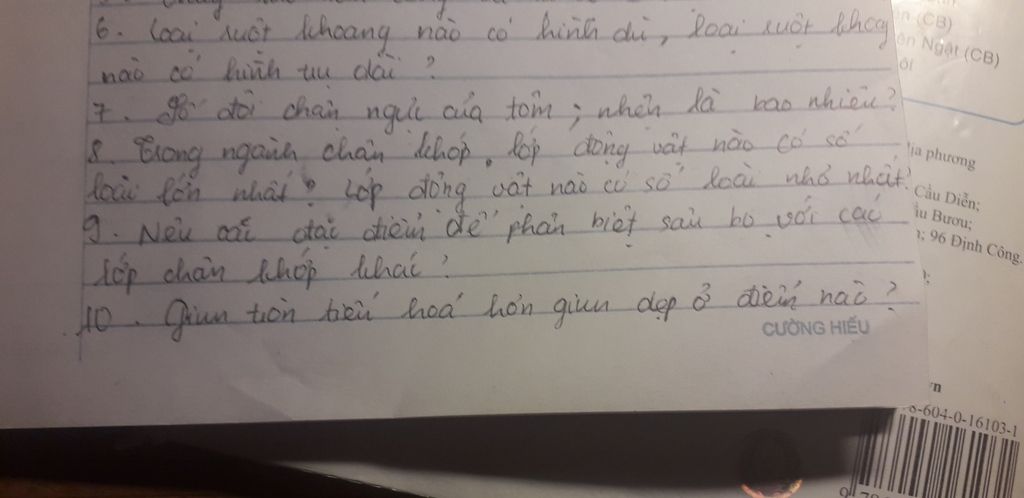 6. Loại ruột khoang nào có hình dù, loại ruột khoang
nào có hình trụ dài?
7. Số đôi chân ngực của tôm; nhện là bao nhiêu?
8. Trong ngành chân khớp, lớp động vật nào có số
loài lớn nhất? Lớp động vật nào có số loài nhỏ nhất?
9. Nêu các đặc điểm để phân biệt sâu bọ với các
lớp chân khớp khác?
10. Giun tròn tiến hoá hơn giun dẹp ở điểm nào?
CƯỜNG HIẾU
(CB)
ên Ngật (CB)
ịa phương
Cầu Diễn;
Bươu;
; 96 Định Công.
-604-0-16103-1